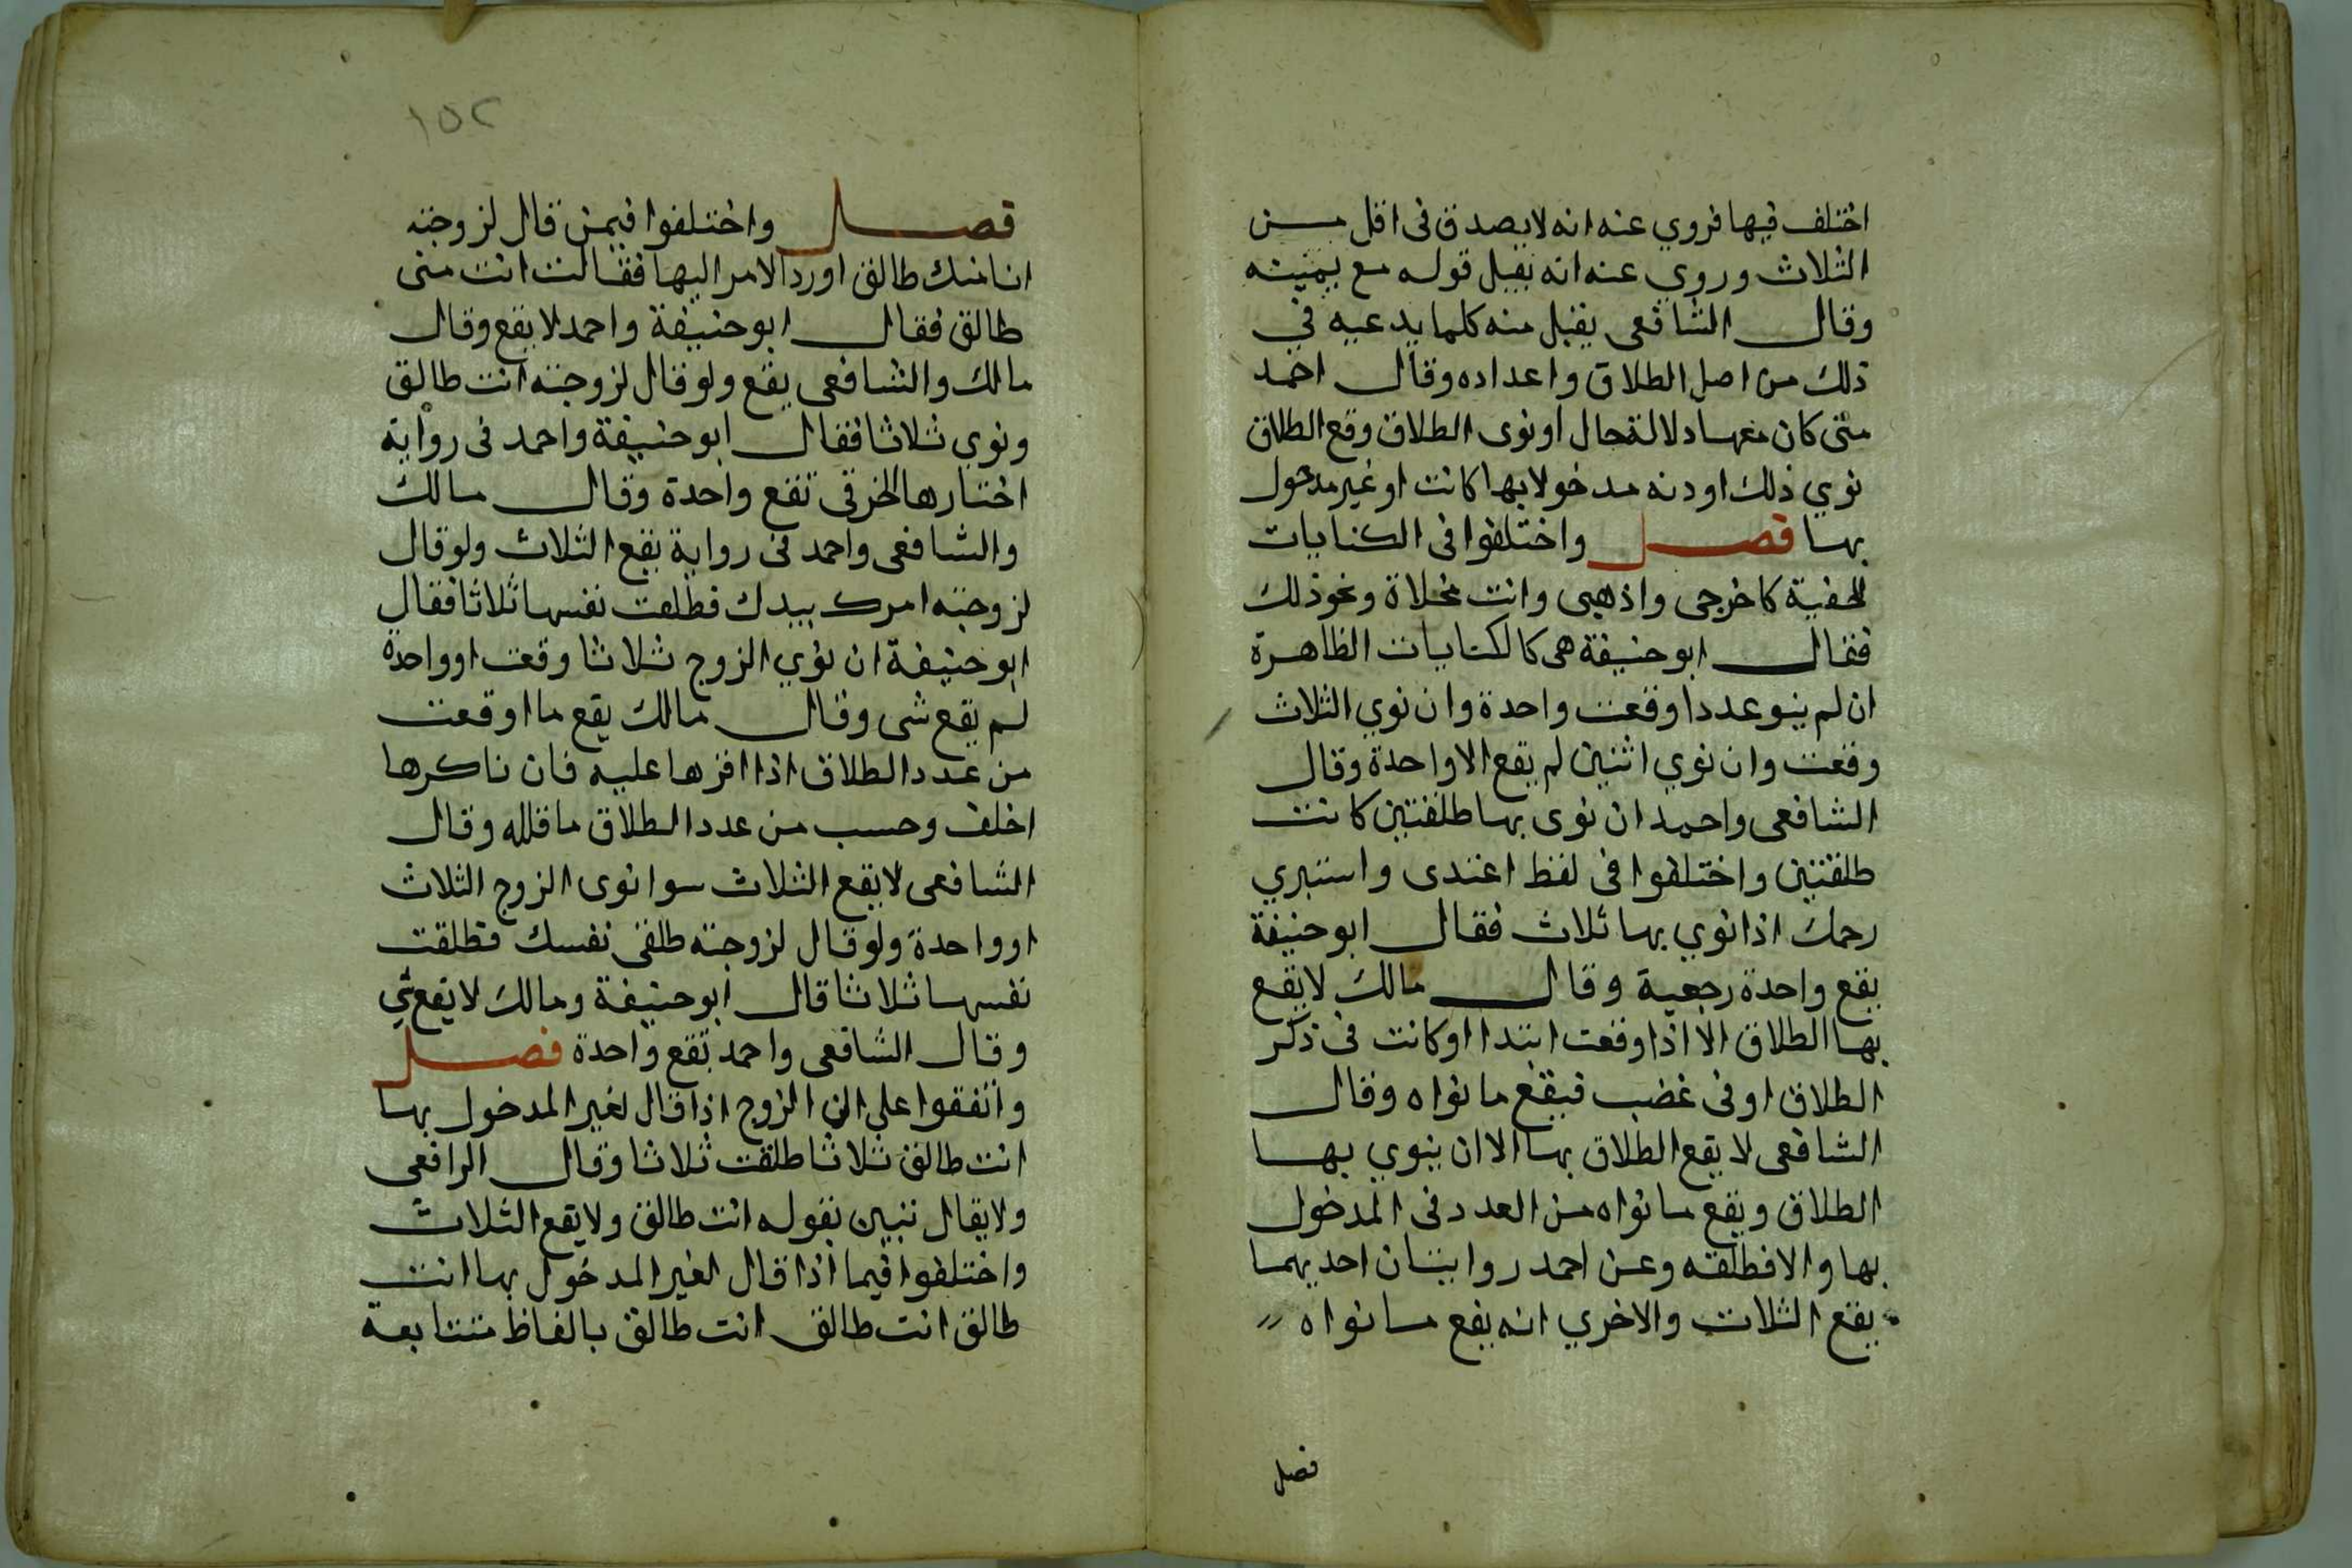 اختلف فيها فروي عنه انه لا يصدق فى اقل مسن
الثلاث وروي عنه انه يقبل قوله مع يمينه
وقال الشافعى يقبل منه كلما يدعيه في
ذلك من اصل الطلاق واعداده وقال احمد
متى كان معها دلالة حال او نوى الطلاق وقع الطلاق
نوي ذلك او دنه مدخولا بها كانت او غير مدخول
بها فصل واختلفوا فى الكنايات
الخفية كاخرجى واذهبى وانت مخلاة ونحو ذلك
فقال ابو حنيفة هى كالكنايات الظاهرة
ان لم ينو عددا وقعت واحدة وان نوي الثلاث
وقعت وان نوي اثنين لم يقع الا واحدة وقال
الشافعى واحمد ان نوى بها طلقتين كانت
طلقتين واختلفوا فى لفظ اعتدى واستبري
رحمك اذا نوي بها ثلاث فقال ابو حنيفة
يقع واحدة رجعية وقال مالك لا يقع
بها الطلاق الا اذا وقعت ابتدا او كانت فى ذكر
الطلاق او فى غضب فيقع ما نواه وقال
الشافعى لا يقع الطلاق بها الا ان ينوي بها
الطلاق ويقع ما نواه من العدد فى المدخول
بها والا فطلقه وعن احمد روايتان احديهما
يقع الثلاث والاخري انه يقع ما نواه
فصل
١٥٢
فصل واختلفوا فيمن قال لزوجته
انا منك طالق او رد الامر اليها فقالت انت منى
طالق فقال ابو حنيفة واحمد لا يقع وقال
مالك والشافعى يقع ولو قال لزوجته انت طالق
ونوي ثلاثا فقال ابو حنيفة واحمد فى رواية
اختارها الخرقى تقع واحدة وقال مالك
والشافعى واحمد فى رواية يقع الثلاث ولو قال
لزوجته امرك بيدك فطلقت نفسها ثلاثا فقال
ابو حنيفة ان نوي الزوج ثلاثا وقعت او واحدة
لم يقع شى وقال مالك يقع ما اوقعت
من عدد الطلاق اذا اقرها عليه فان ناكرها
احلف وحسب من عدد الطلاق ما قلله وقال
الشافعى لا يقع الثلاث سوا نوى الزوج الثلاث
او واحدة ولو قال لزوجته طلقى نفسك فطلقت
نفسها ثلاثا قال ابو حنيفة ومالك لا يقع شي
وقال الشافعى واحمد تقع واحدة فصل
واتفقوا على ان الزوج اذا قال لغير المدخول بها
انت طالق ثلاثا طلقت ثلاثا وقال الرافعى
ولا يقال تبين بقوله انت طالق ولا يقع الثلاث
واختلفوا فيما اذا قال لغير المدخول بها انت
طالق انت طالق انت طالق بالفاظ متتابعة